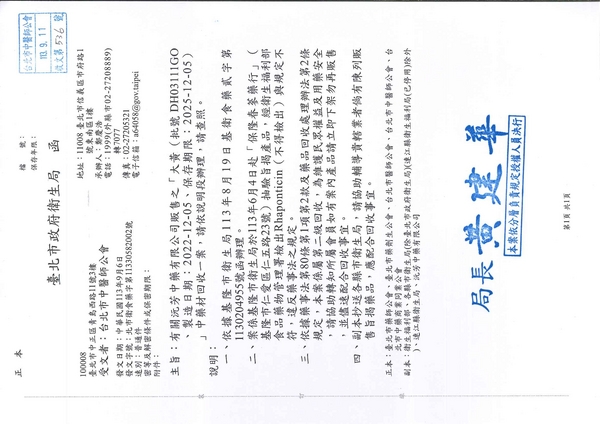 正本
檔 號:
保存年限:
臺北市政府衛生局 函
地址:11008 臺北市信義區市府路1
號東南區1樓
承辦人:鄭慶浩
電話:1999(外縣市02-27208889)
轉7077
傳真:02-27205321
電子信箱:a6458@gov.taipei
台北市中醫師公會
113. 9. 11
收文第536號
100008
臺北市中正區青島西路11號3樓
受文者:台北市中醫師公會
發文日期:中華民國113年9月6日
發文字號:北市衛食藥字第1133058200​2號
速別:普通件
密等及解密條件或保密期限:
附件:
主旨:有關沅芳中藥有限公司販售之「大黃(批號:DH03111GO
、製造日期:2022-12-05、保存期限:2025-12-05)
」中藥材回收一案,請依說明段辦理,請查照。
說明:
一、依據基隆市衛生局113年8月19日基衛食藥貳字第
1130204955號函辦理。
二、案係基隆市衛生局於113年6月4日赴「保隆春蔘藥行」(
基隆市仁愛區仁五路23號)抽驗旨揭產品,經衛生福利部
食品藥物管理署檢出Rhaponticin(不得檢出)與規定不
符,違反藥事法之規定。
三、依據藥事法第80條第1項第2款及藥品回收處理辦法第2條
規定,本案係屬第二級回收,為維護民眾權益及用藥安全
,請協助轉知所屬會員如有案內產品請立即下架勿再販售
,並儘速配合回收事宜。
四、副本抄送各縣市衛生局,請協助輔導貴轄業者倘有陳列販
售旨揭藥品,應配合回收事宜。
正本:臺北市藥師公會、台北市藥劑生公會、台北市中醫師公會、台
北市中藥商業同業公會
副本:衛生福利部、各縣市衛生局(除臺北市政府衛生局)(連江縣衛生福利局(已停用)除外
)、連江縣衛生局、沅芳中藥有限公司
局長 黃建華
本案依分層負責規定授權人員決行
第1頁 共1頁